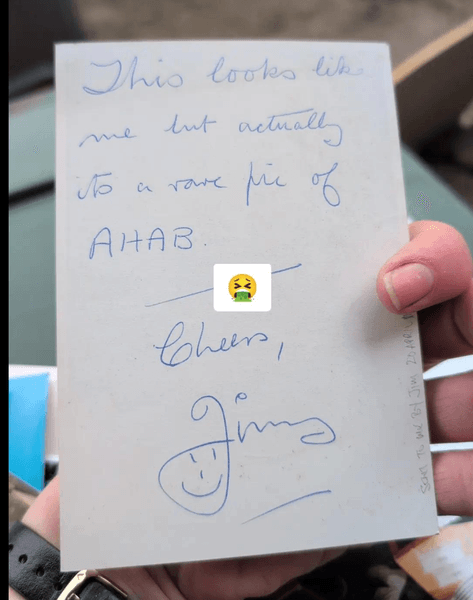 This looks like
me but actually
its a rare pic of
AHAB.
Cheers,
Jimmy